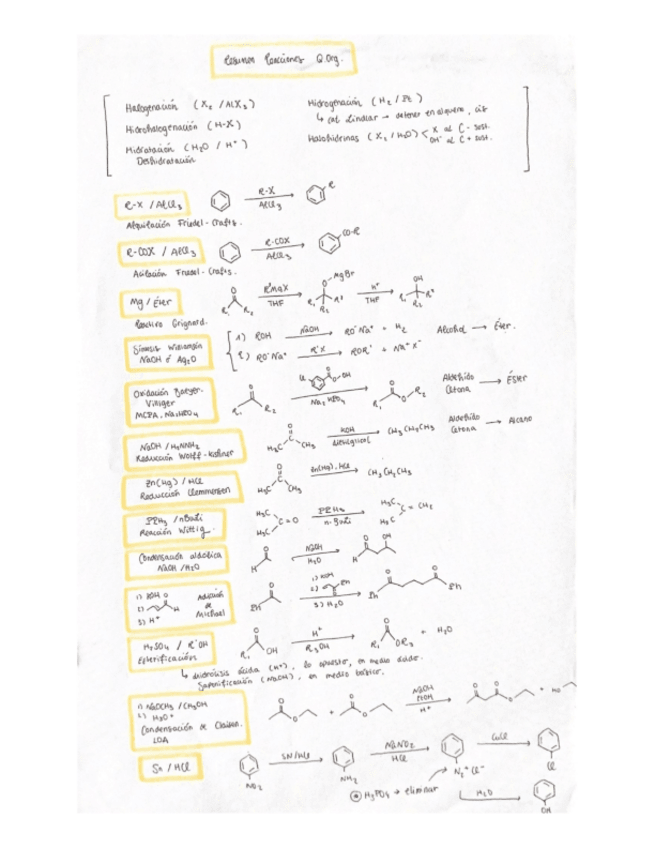 Resumen Reacciones Q.Org.
Halogenación (X₂ / AlX₃)
Hidrohalogenación (H-X)
Hidratación (H₂O / H⁺)
Deshidratación
Hidrogenación (H₂ / Pt)
↳ cat Lindlar → detener en alqueno, cis
Halohidrinas (X₂ / H₂O) < X al C - sust.
OH⁻ al C + sust.
R-X / AlCl₃
R-X
AlCl₃
R
Alquilación Friedel-Crafts.
R-COX / AlCl₃
R-COX
AlCl₃
CO-R
Acilación Friedel-Crafts.
Mg / Éter
R₁ R₂
R"MgX
THF
O-MgBr
R₁ R₂ R"
H⁺
THF
OH
R₁ R₂ R"
Reactivo Grignard.
Síntesis Williamson
NaOH ó Ag₂O
1) ROH NaOH → RO⁻Na⁺ + H₂
2) RO⁻Na⁺ R'X → ROR' + Na⁺X⁻
Alcohol → Éter.
Oxidación Baeyer-
Villiger
MCPA, Na₂HPO₄
O
R₁ R₂
Cl O OH
Na₂HPO₄
O
R₁ O R₂
Aldehído
Cetona → Éster
NaOH / H₂NNH₂
Reducción Wolff-Kishner
O
H₃C CH₃
KOH
dietilglicol
CH₃CH₂CH₃
Aldehído
Cetona → Alcano
Zn(Hg) / HCl
Reducción Clemmensen
O
H₃C CH₃
Zn(Hg), HCl
CH₃CH₂CH₃
PPh₃ / nBuLi
Reacción Wittig.
H₃C
H₃C C=O
PPh₃
n-BuLi
H₃C
H₃C C=CH₂
Condensación aldólica
NaOH / H₂O
O
H
NaOH
H₂O
O OH
H
1) KOH
2) O H
3) H⁺
Adición
de
Michael
O
Ph
1) KOH
2) O Ph
3) H₂O
O O
Ph Ph
H₂SO₄ / R'OH
Esterificación
O
R₁ OH
H⁺
R₃OH
O
R₁ OR₃ + H₂O
↳ Hidrólisis ácida (H⁺), lo opuesto, en medio ácido.
Saponificación (NaOH), en medio básico.
1) NaOCH₃ / CH₃OH
2) H₃O⁺
Condensación de Claisen.
LDA
O O + O O
NaOH
EtOH
H⁺
O O O + HO
Sn / HCl
NO₂
Sn/HCl
NH₂
NaNO₂
HCl
N₂⁺Cl⁻
CuCl
Cl
* H₃PO₂ → eliminar
H₂O
OH